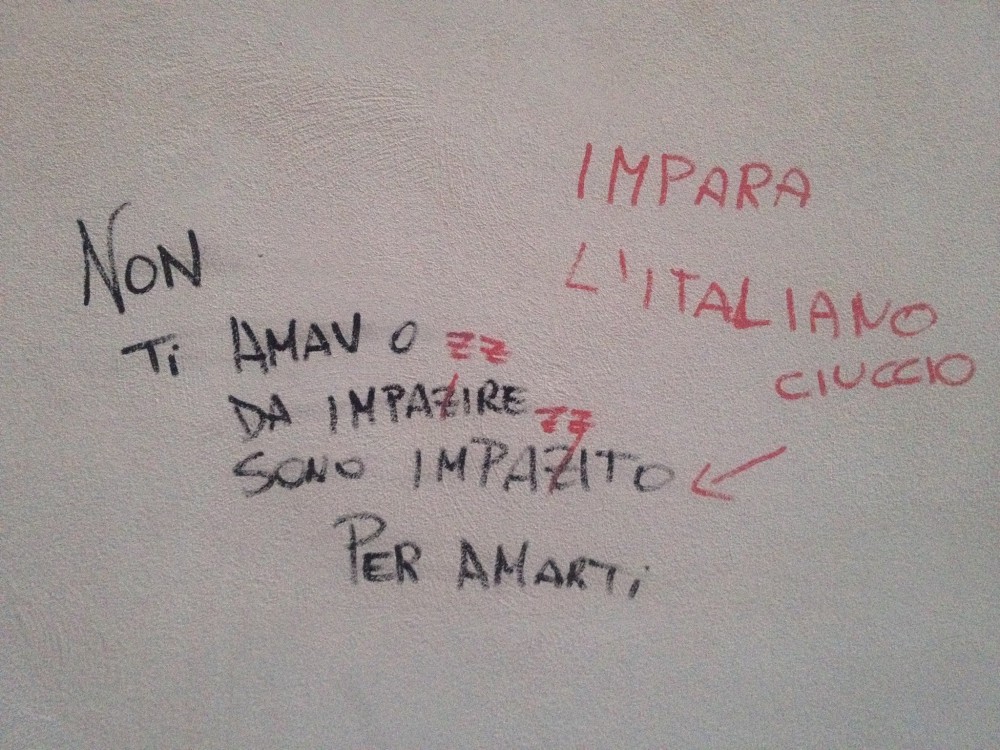 NON
Ti AMAVO
DA IMPAZIRE
SONO IMPAZITO
PER AMARTi
zz
zz
IMPARA
L'ITALIANO
CIUCCIO